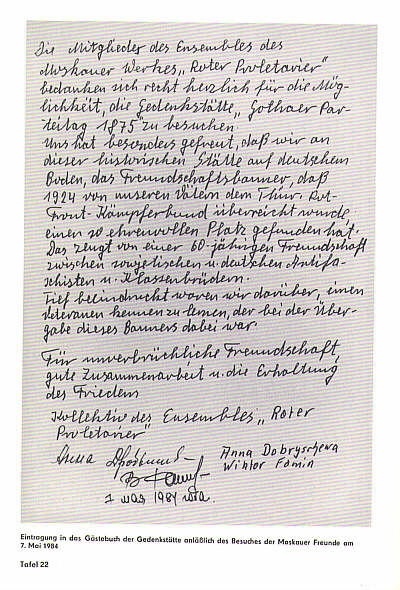 Die Mitglieder des Ensembles des
Moskauer Werkes „Roter Proletarier"
bedanken sich recht herzlich für die Mög-
lichkeit, die Gedenkstätte „Gothaer Par-
teitag 1875" zu besuchen.
Uns hat besonders gefreut, daß wir an
dieser historischen Stätte auf deutschem
Boden, das Freundschaftsbanner, daß
1924 von unseren Vätern dem Thür. Rot-
Front-Kämpferbund überreicht wurde,
einen so ehrenvollen Platz gefunden hat.
Das zeugt von einer 60-jährigen Freundschaft
zwischen sowjetischen u. deutschen Antifa-
schisten u. Klassenbrüdern.
Tief beeindruckt waren wir darüber, einen
Veteranen kennen zu lernen, der bei der Über-
gabe dieses Banners dabei war.
Für unverbrüchliche Freundschaft,
gute Zusammenarbeit u. die Erhaltung
des Friedens
Kollektiv des Ensembles „Roter
Proletarier"
Anna Dobryschewa
Wiktor Fomin
мая 1984 года.
Eintragung in das Gästebuch der Gedenkstätte anläßlich des Besuches der Moskauer Freunde am
7. Mai 1984
Tafel 22